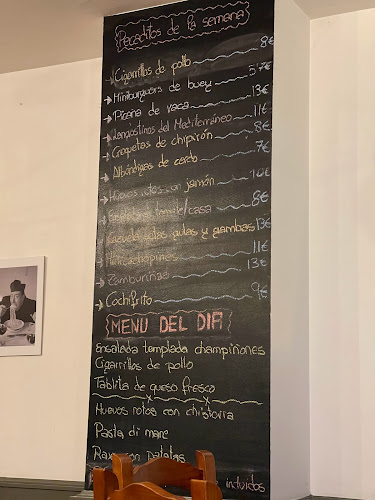 Pecaditos de la semana
Cigarrillos de pollo 8€
Miniburguers de buey 5'7€
Picaña de vaca 13€
Langostinos del Mediterráneo 11€
Croquetas de chipirón 8€
Albóndigas de cerdo 7€
Huevos rotos con jamón 10€
Ensalada de tomate/casa 8€
Cazuela setas, gulas y gambas 13€
11€
Zamburiñas 13€
Cochifrito 9€
MENU DEL DIA
Ensalada templada champiñones
Cigarrillos de pollo
Tablita de queso fresco
Huevos rotos con chistorra
Pasta di mare
con patatas
incluidos